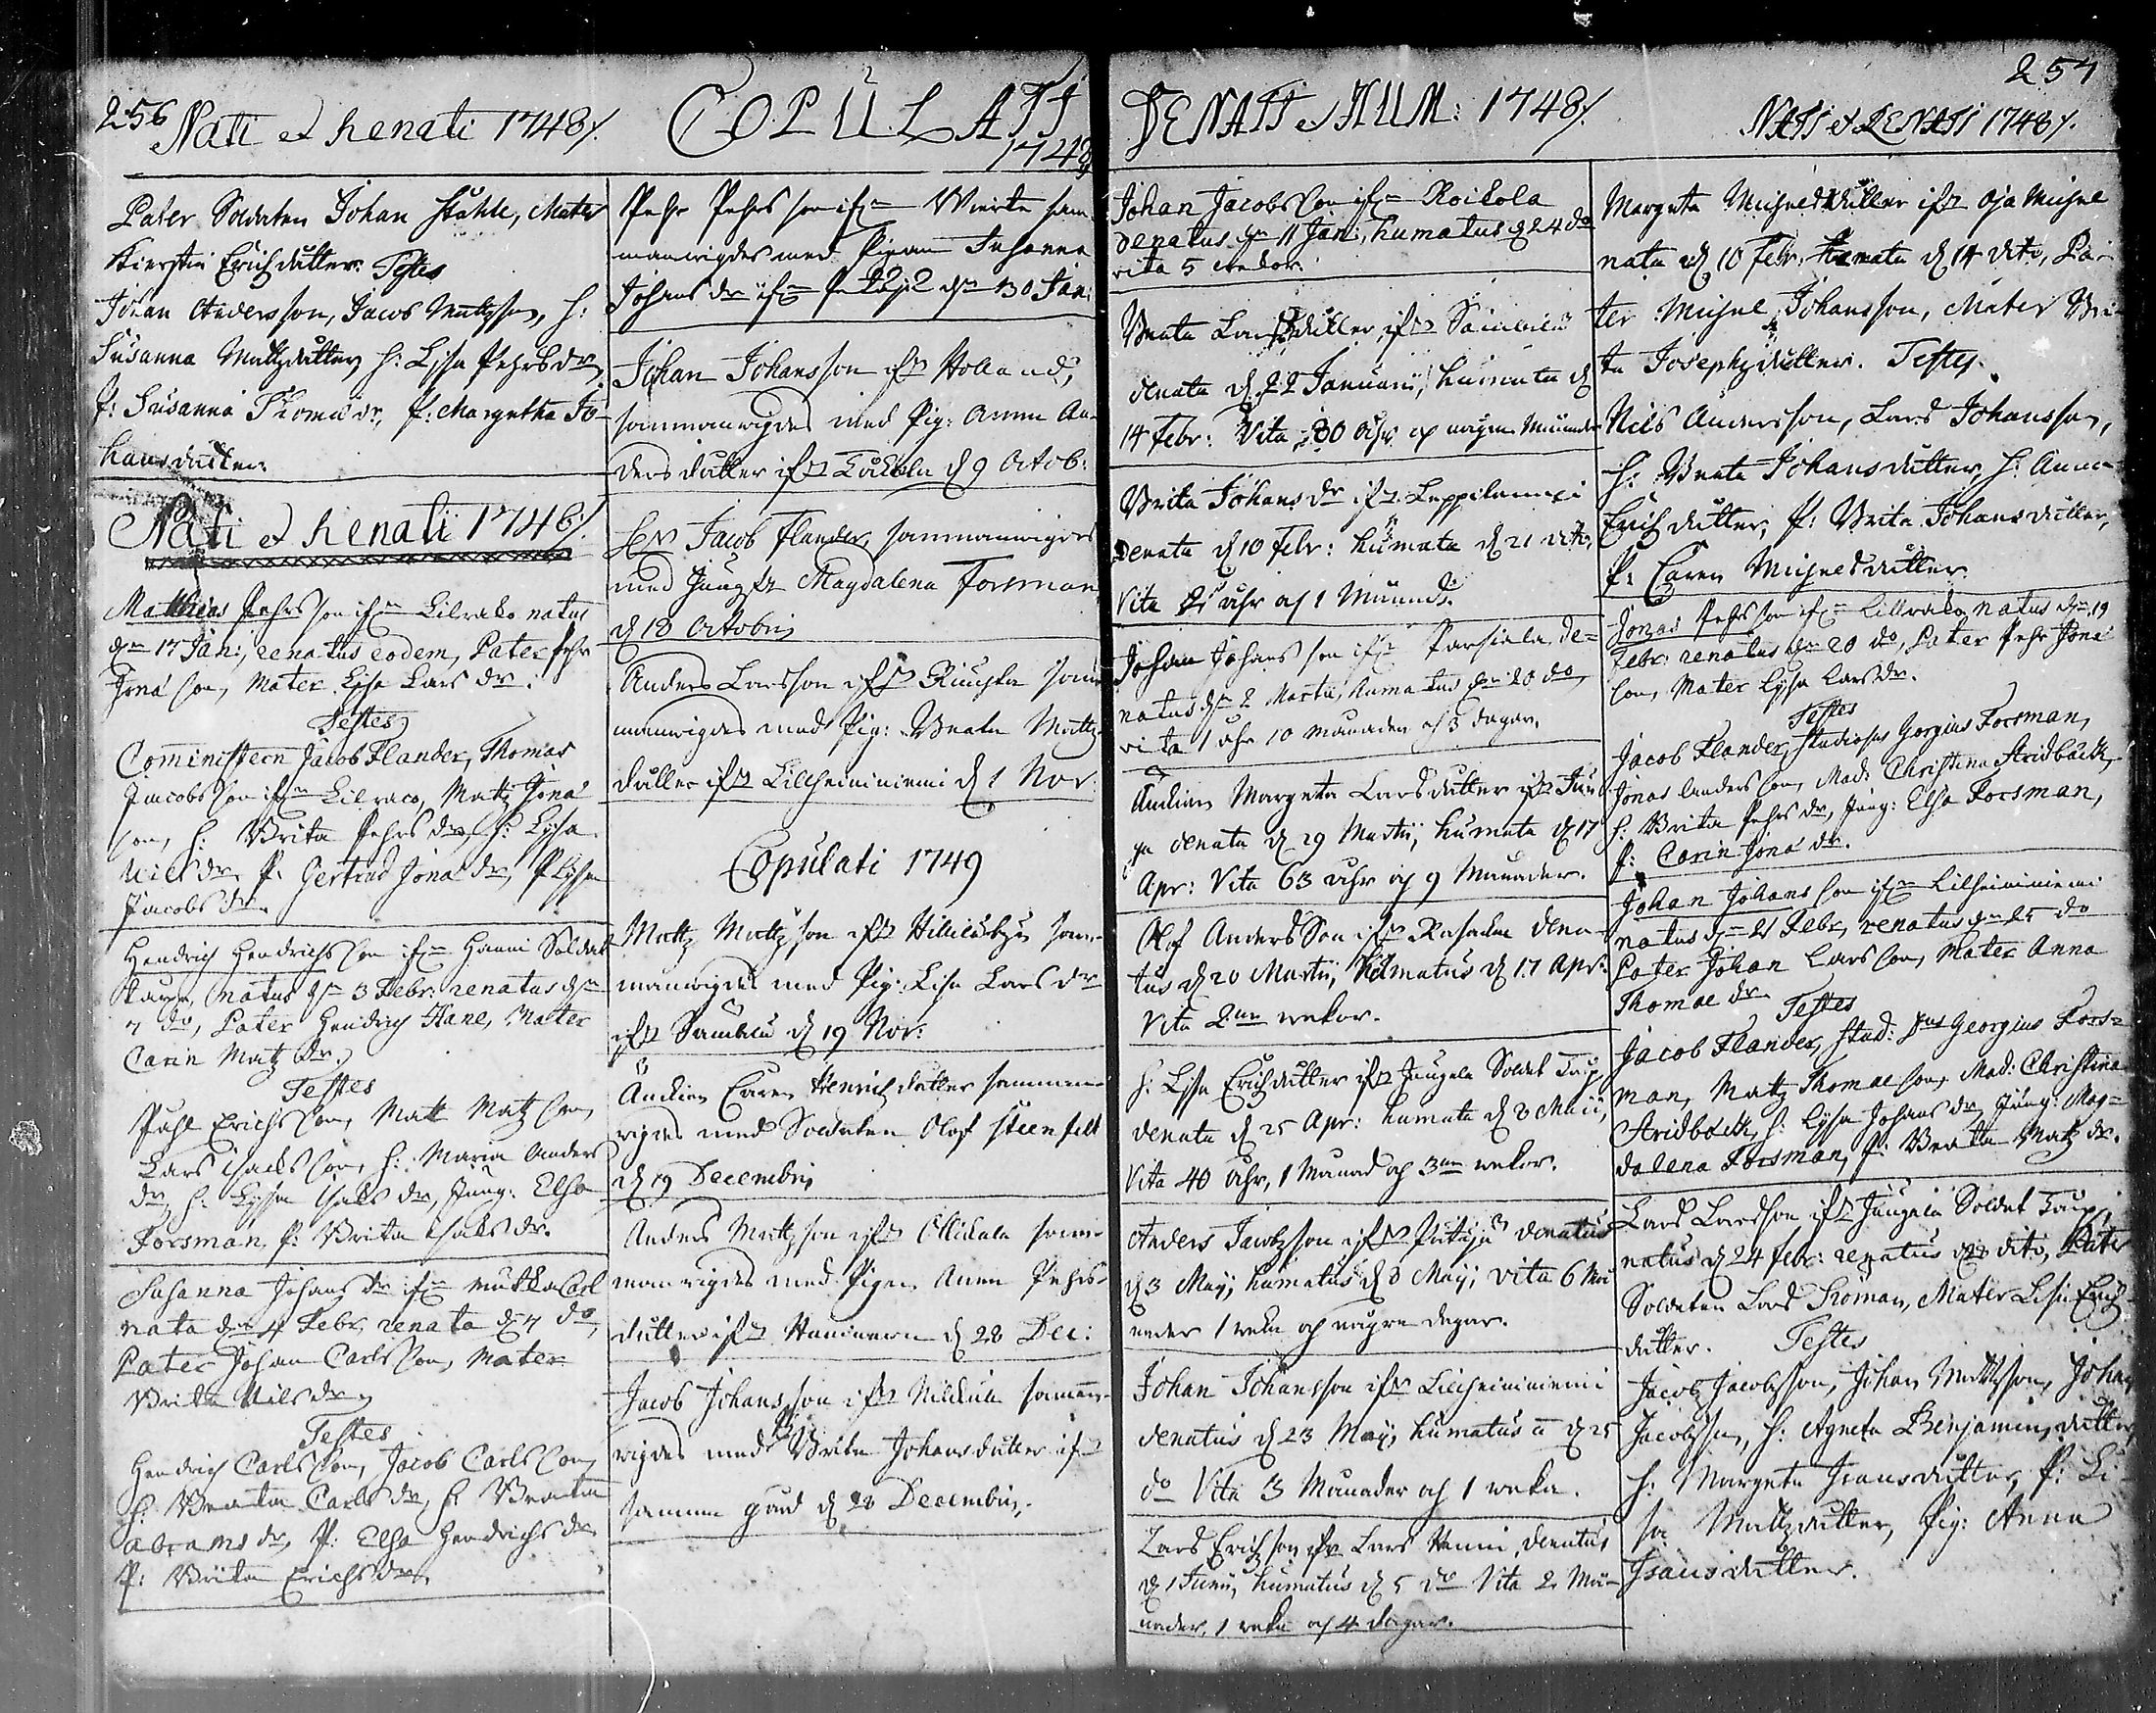 256 Nati et henati 1748/.
Pater Soldaten Johan Stähle, Mater
Kierstin Erichdutter. Testes
Johan Andersson, Jacob Mattzson, h:
Susanna Mattzdutter, h: Lisa Pehrsdr,
p: Susanna Thomædr, p: Margetha Jo-
hansdutter.
Nati et henati 1748/.
Matthias Pehrsson ifrn Lilrako natus
dn 17 Jan:, renatus eodem, Pater Pehr
Jonæson, Mater Lisa Larsdr.
Testes
Cominister Jacob Flander, Thomas
Jacobsson ifrn Lilraco, Matz Jonæ
son, h: Brita Pehrsdr, h: Lysa
Nielsdr, p: Gertrud Jonædr, p: Lysa
Jacobsdr.
Hendrich Hendrichsson ifrn Hanni Soldat
natus dn 3 Febr: renatus dn
7 do, Pater Hendrich Hane, Mater
Carin Matzdr.
Testes
Påhl Erichsson, Matt Matzson,
Lars Isacsson, h: Maria Anders
dr, h: Lysa Isaksdr, Jung: Elsa
Forsman, p: Brita Isaksdr.
Susanna Johansdr ifrn Mutka Carl
nata dn 4 Febr, renata dn 7 do,
Pater Johan Carlsson, Mater
Brita Nilsdr.
Testes
Hendrich Carlsson, Jacob Carlsson,
h: Beata Carlsdr, h: Beata
Abramsdr, p: Elsa Hendrichsdr
p: Brita Erichsdr.
COPULATI
1748
Pehr Pehrsson ifrn Wierta sam
manvigdes med Pigan Susanna
Johansdr ifrn dn 30 Jan:
Johan Johansson ifr Holland,
sammanvigdes med Pig: Anna An-
dersdutter ifr d 9 Octob:
Hr Jacob Flander, sammanvigdes
med Jungfr Magdalena Forsman
d 18 Octobris
Anders Larsson ifr sam
manvigdes med Pig: Beata Mattz-
dutter ifr Lillheininiemi d 1 Nov:
Copulati 1749
Mattz Mattzson ifr sam-
manvigdes med Pig: Lisa Larsdr
ifr d 19 Nov:
Änckian Caren Henrichdutter samman-
vigdes med Soldaten Olof Steenfelt
d 19 Decembris
Anders Mattzson ifr Ollikala sam-
manvigdes med Pigan Anna Pehrs-
dutter ifr d 28 Dec:
Jacob Johansson ifr samman-
vigdes med Brita Johansdutter ifr
samma gård d 28 Decembris.
DENATI et HUM: 1748/.
Johan Jacobsson ifrn Roikola
denatus dn 11 Jan:, humatus d 24 do
vita 5 wekor.
Beata Larsdutter ifr
denata d 22 Januarii, humata d
14 Febr: Vita 80 åhr och någre månader
Brita Johansdr ifr Leppilammi
denata d 10 Febr: humata d 21 dito,
Vita åhr och 1 Månad.
Johan Johansson ifrn Parsiala, de-
natus dn 2 Martii, humatus dn 20 do,
vita 1 åhr 10 månader och 3 dagar.
Änckian Margeta Larsdutter ifr
denata d 29 Martii, humata d 17
Apr: Vita 63 åhr och 9 Månader.
Olof Andersson ifr dena-
tus d 20 Martii, humatus d 17 Apr:
Vita 2ne wekor.
h: Lisa Erichdutter ifr Jungala Soldat Torp
denata d 25 Apr: humata d 8 Maii,
Vita 40 åhr, 1 Månad och 3ne wekor.
Anders Jacobsson ifr denatus
d 3 Maij, humatus d 8 Maij, vita 6 Må
nader 1 weka och någre dagar.
Johan Johansson ifr Lillheininiemi
denatus d 23 Maij, humatus d 25
do Vita 3 Månader och 1 weka.
Lars Erichsson ifr Lars Hanni, denatus
d 1 Junij, humatus d 5 do Vita 2 Må-
nader, 1 weka och 4 dagar.
257
NATI et RENATI 1748/.
Margeta Michelsdutter ifr Oja Michel
nata d 10 Febr: renata d 14 dito, Pa-
ter Michel Johansson, Mater Bri-
ta Josephzdutter. Testes.
Nils Andersson, Lars Johansson,
h: Beata Johansdutter, h: Anna
Erichdutter, p: Brita Johansdutter,
p: Caren Michelsdutter.
Jonas Pehrsson ifrn Lillrako natus dn 19
Febr: renatus dn 20 do, Pater Pehr Jonæ
son, Mater Lysa Larsdr.
Testes
Jacob Flander, Studiosus Georgius Forsman,
Jonas Andersson, Mad: Christina Aridbäck,
h: Brita Pehrsdr, Jung: Elsa Forsman,
p: Carin Jonædr.
Johan Johansson ifrn Lilheininiemi
natus dn 21 Febr, renatus dn 25 do
Pater Johan Larsson, Mater Anna
Thomædr
Testes
Jacob Flander, Stud: Dns Georgius Fors-
man, Matz Thomæson, Mad: Christina
Aridbäck, h: Lysa Johansdr, Jung: Mag-
dalena Forsman, p: Beata Matzdr.
Lars Larsson ifr Jungala Soldat Torp,
natus d 24 Febr: renatus d 28 dito, Pater
Soldaten Lars Thoman, Mater Lisa Erich-
dutter. Testes
Jacob Jacobsson, Johan Mattzson, Johan
Jacobsson, h: Agneta Benjaminsdutter,
h: Margeta Jransdutter, p: Li-
sa Mattzdutter, Pig: Anna
Isacsdutter.